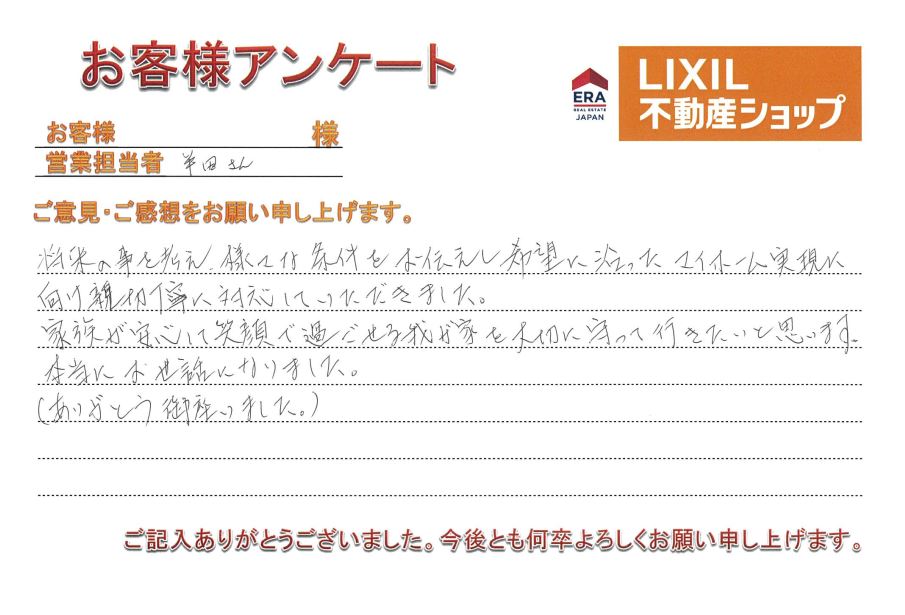 お客様アンケート
ERA
REAL ESTATE
JAPAN
LIXIL
不動産ショップ
お客様 様
営業担当者 半田さん
ご意見・ご感想をお願い申し上げます。
将来の事を考え、様々な条件をお伝えし希望に沿ったマイホーム実現に
向け親切丁寧に対応していただきました。
家族が安心して笑顔で過ごせる我が家を大切に守って行きたいと思います。
本当にお世話になりました。
(ありがとう御座いました。)
ご記入ありがとうございました。今後とも何卒よろしくお願い申し上げます。